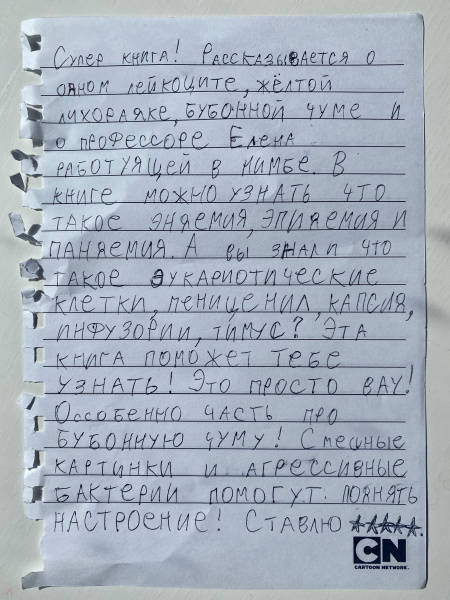 Супер книга! Рассказывается о
одном лейкоците, жёлтой
лихорадке, бубонной чуме и
о профессоре Елена
работуящей в нимбе. В
книге можно узнать что
такое эндемия, эпидемия и
пандемия. А вы знали что
такое эукариотические
клетки, пениценил, капсид,
инфузории, тимус? Эта
книга поможет тебе
узнать! Это просто вау!
Оссобенно часть про
бубонную чуму! Смешные
картинки и агрессивные
бактерии помогут поднять
настроение! Ставлю ★★★★★.
CN
CARTOON NETWORK.